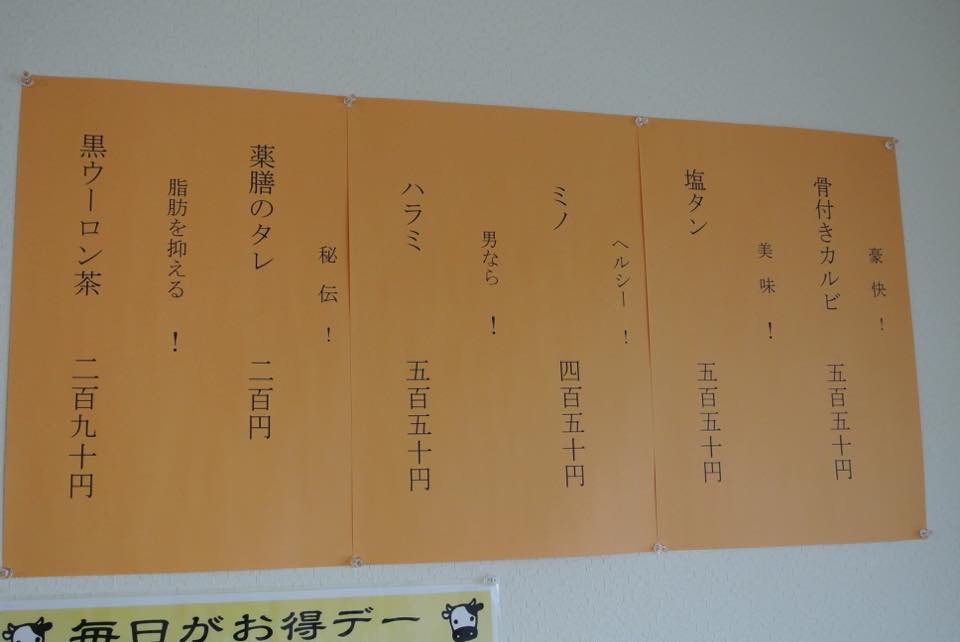 豪快!
骨付きカルビ 五百五十円
美味!
塩タン 五百五十円
ヘルシー!
ミノ 四百五十円
男なら!
ハラミ 五百五十円
秘伝!
薬膳のタレ 二百円
脂肪を抑える!
黒ウーロン茶 二百九十円
毎日がお得デー